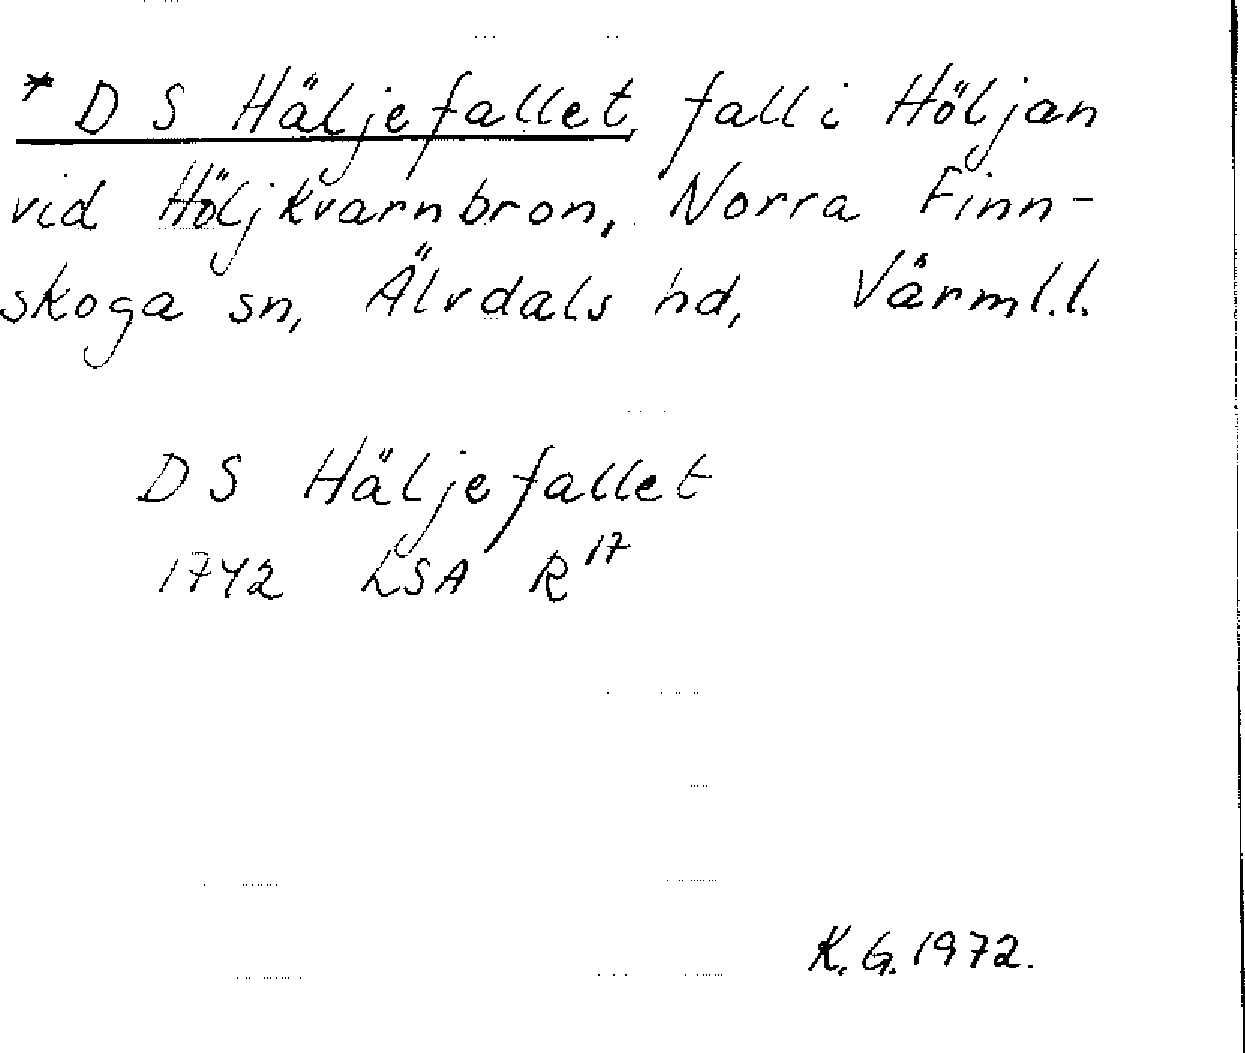 * D S Häljefallet, fall i Höljan
vid Höljkvarnbron, Norra Finn-
skoga sn, Älvdals hd, Värml.l.
D S Häljefallet
1742 LSA R 17
K.G. 1972.